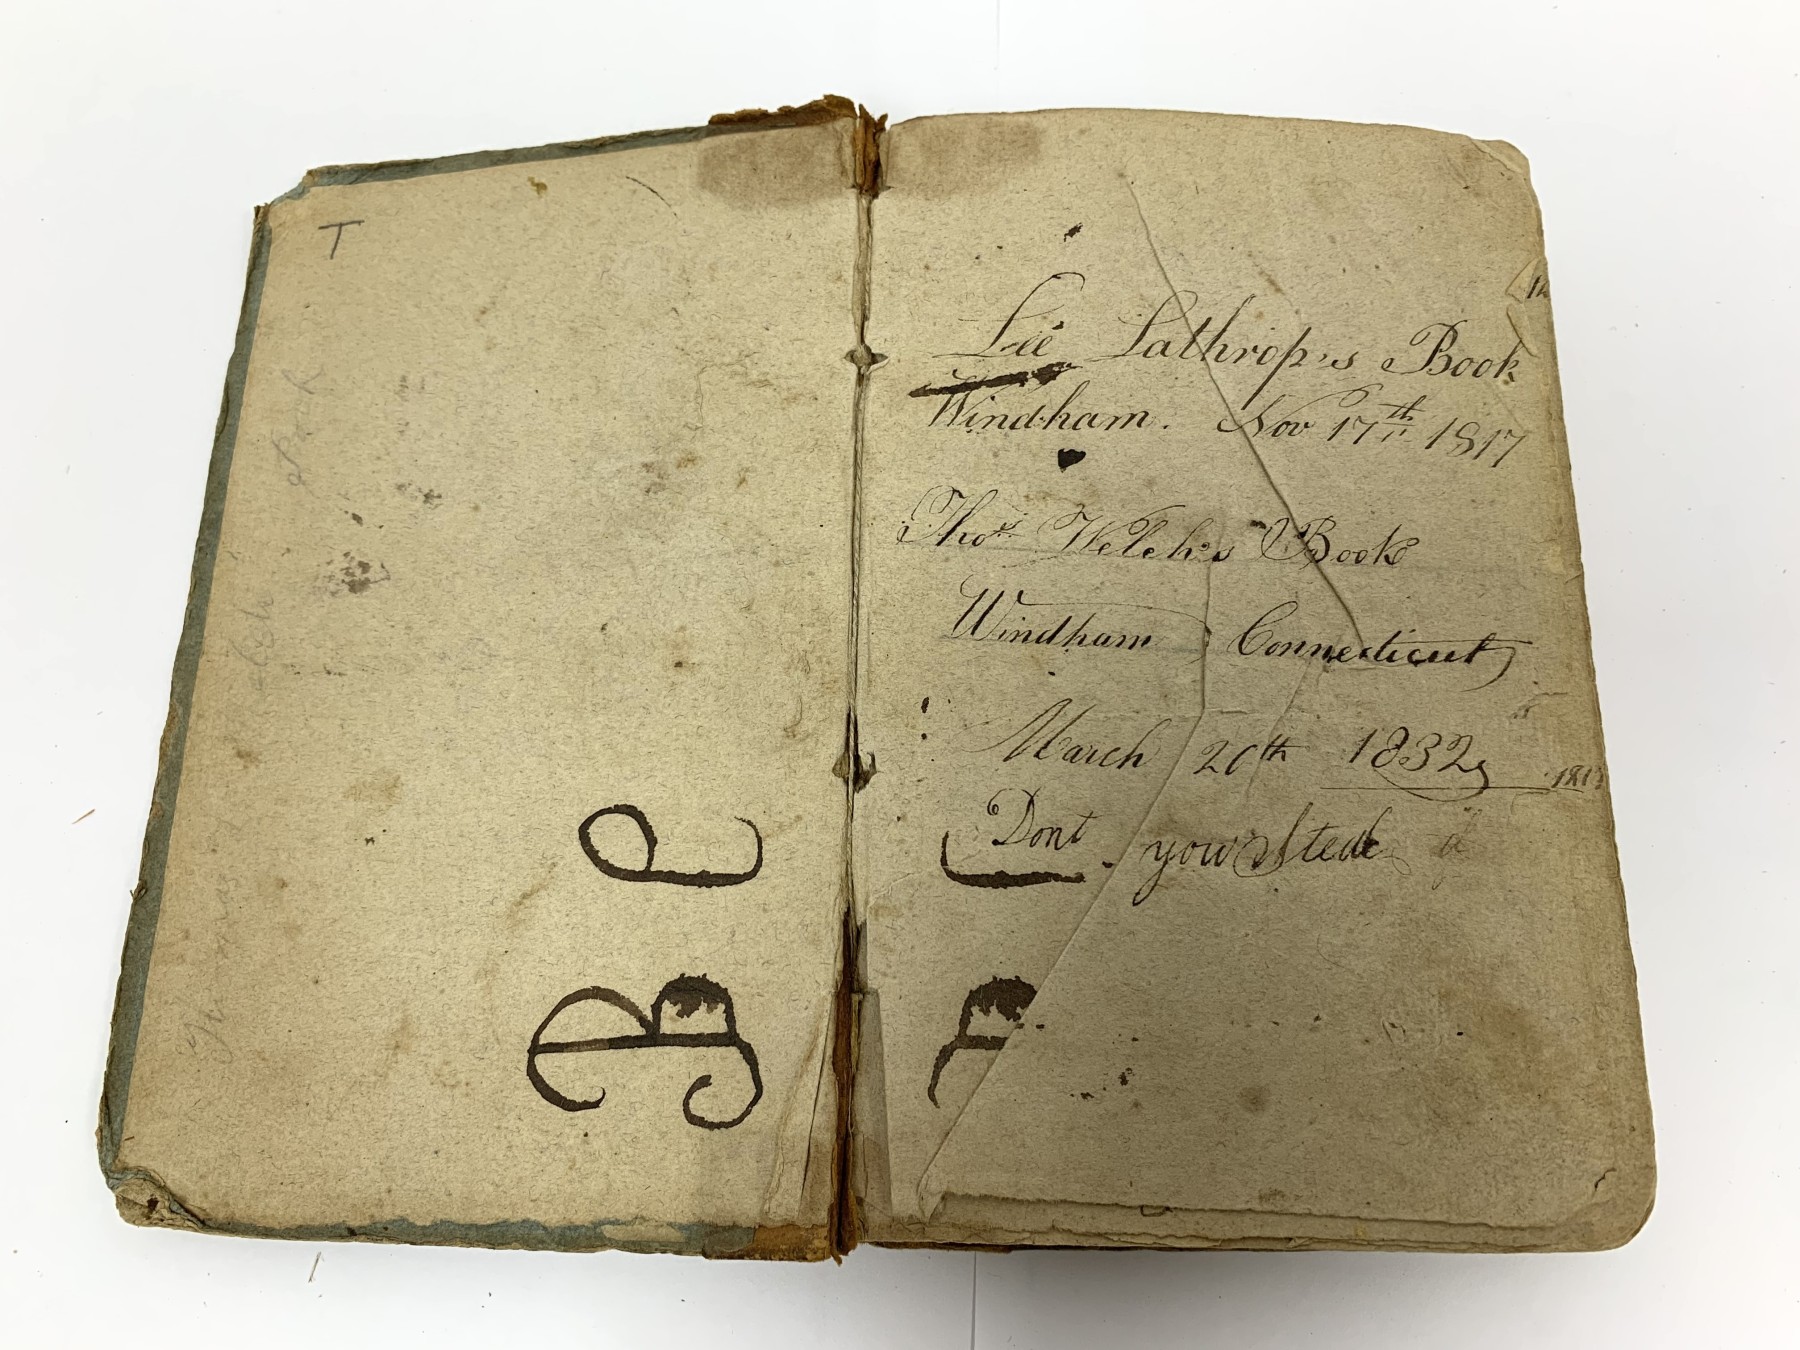 T
Lee Lathrop's Book
Windham. Nov 17th 1817
Thos Welch's Book
Windham Connecticut
March 20th 1832
Dont you Steal